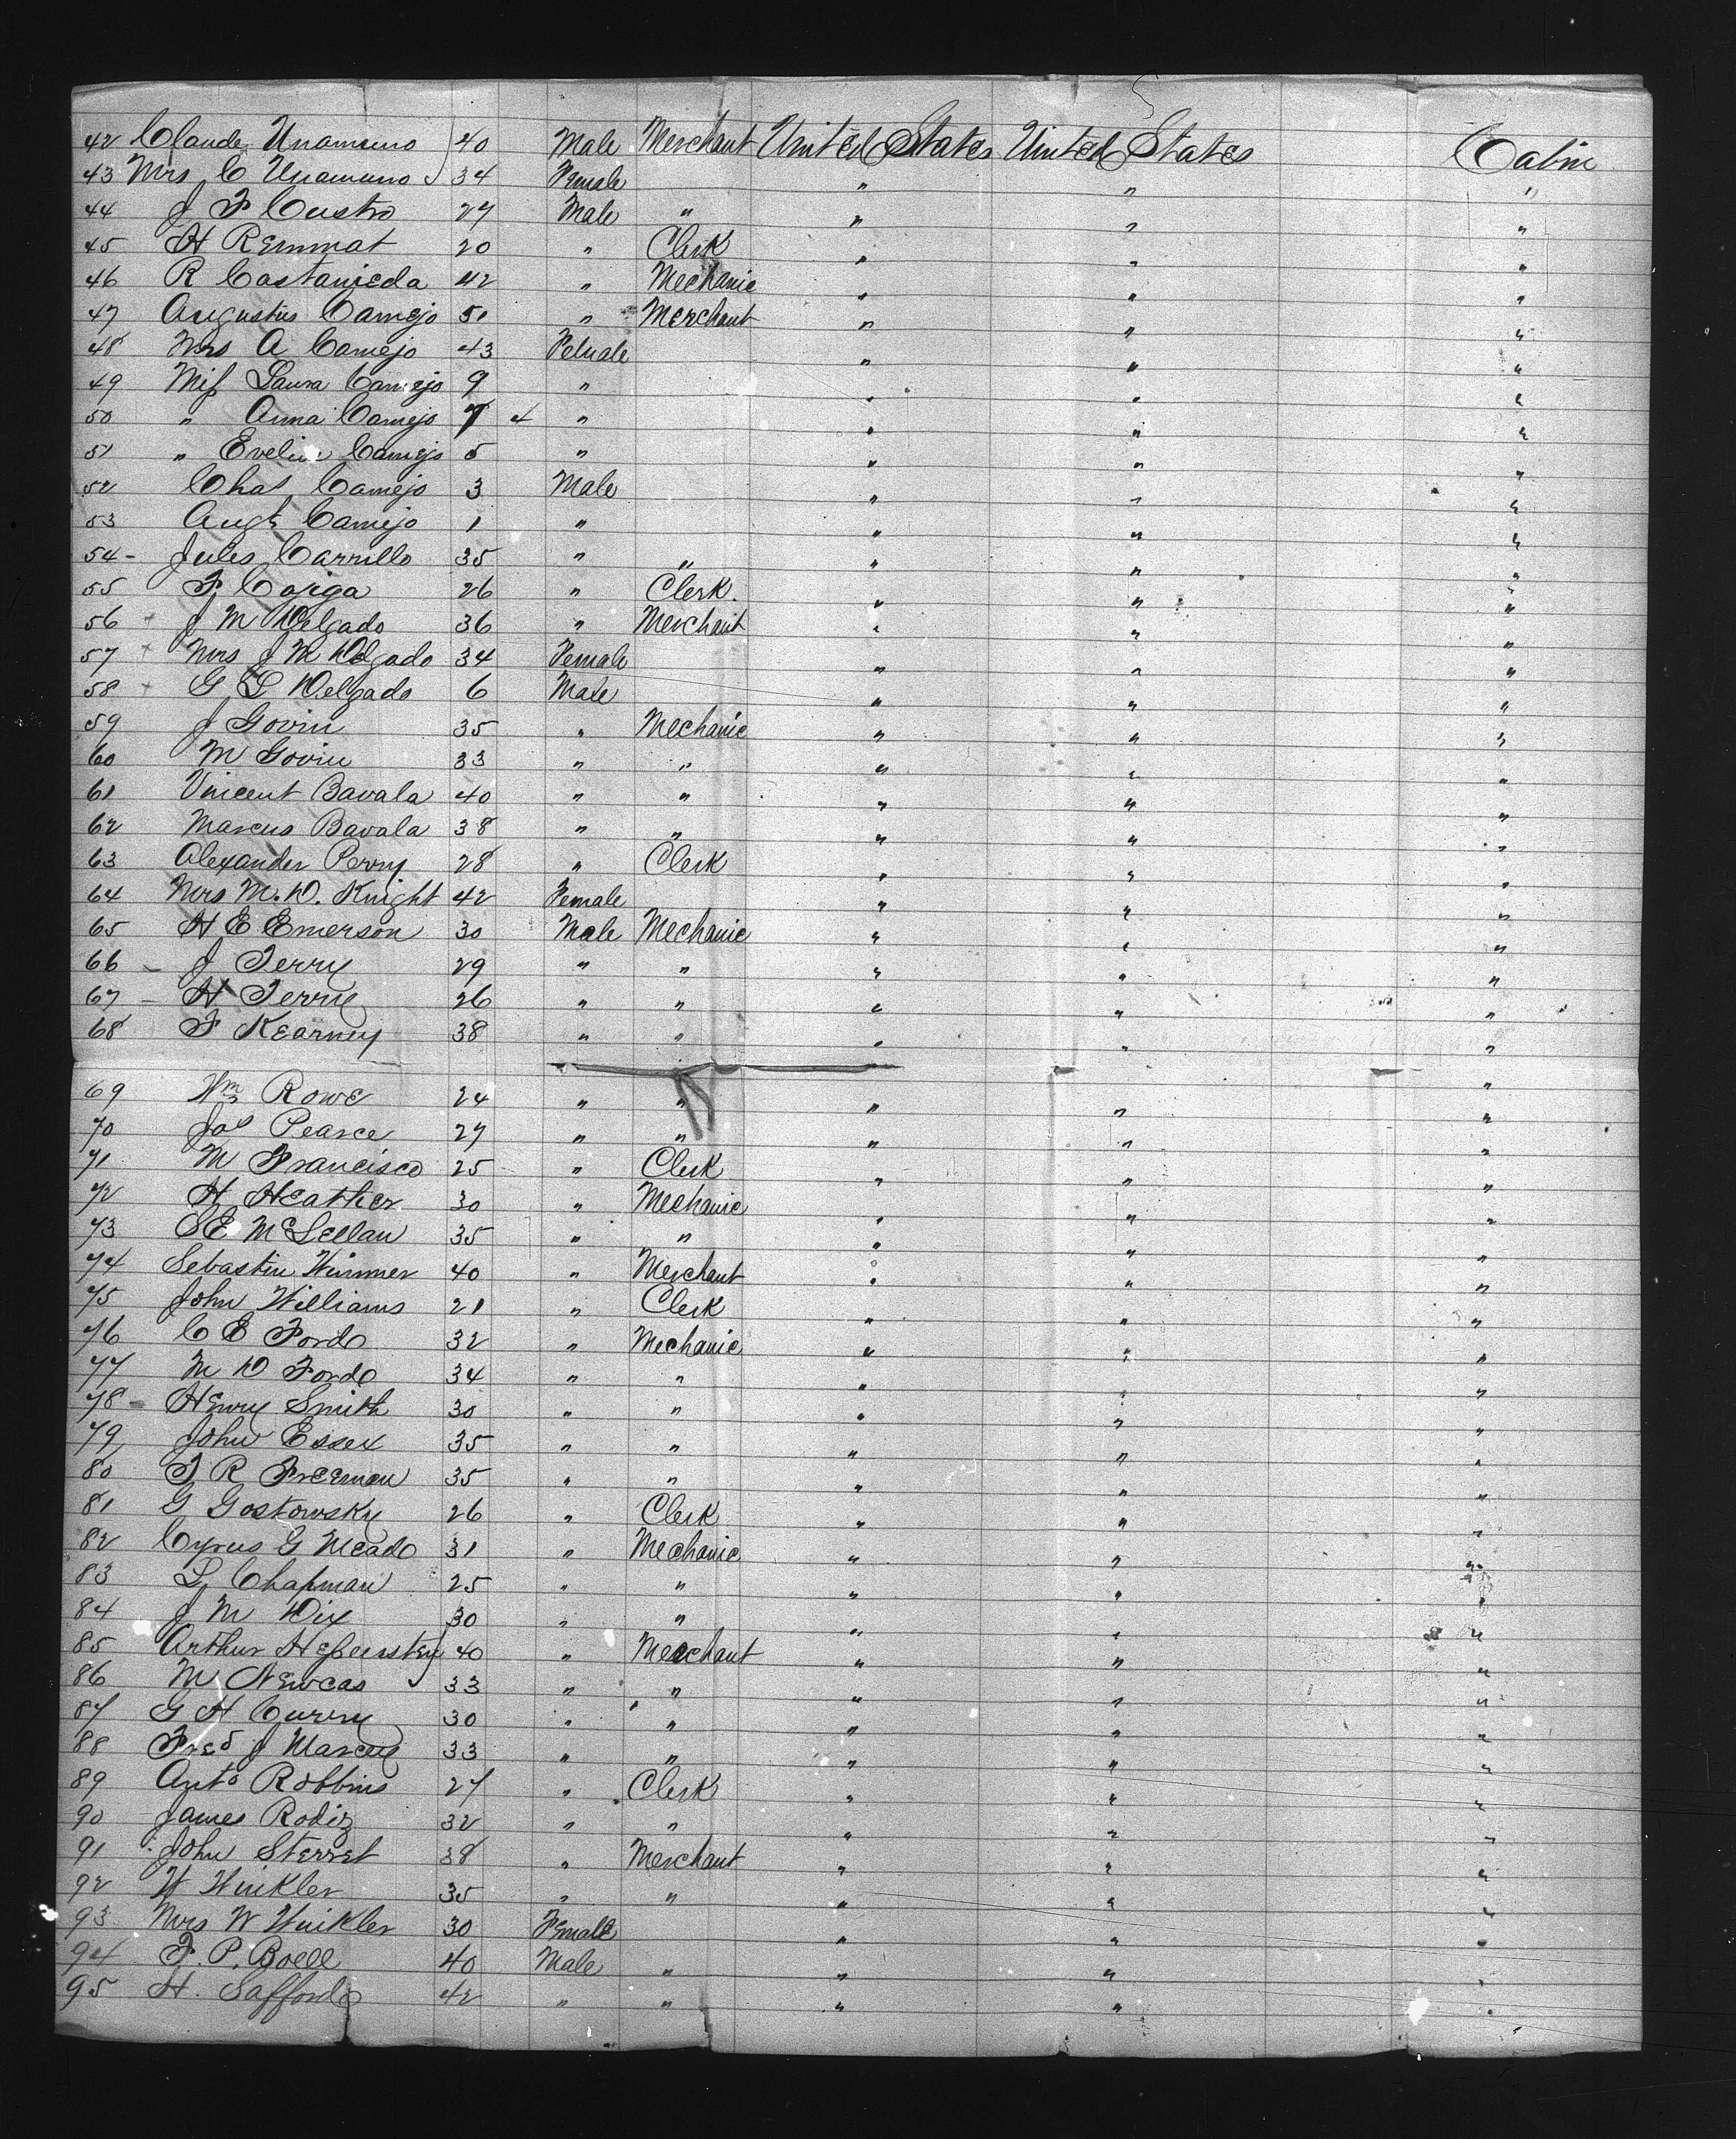 42 Claude Unamuno 40 Male Merchant United States United States Cabin
43 Mrs C Unamuno 34 Female " " "
44 J F Custro 27 Male " " " "
45 H Remmat 20 " Clerk " " "
46 R Castanieda 42 " Mechanic " " "
47 Augustus Camejo 51 " Merchant " " "
48 Mrs A Camejo 43 Female " " "
49 Miss Laura Camejo 9 " " " "
50 " Anna Camejo 7 " " " "
51 " Evelin Camejo 5 " " " "
52 Chas Camejo 3 Male " " "
53 Augt Camejo 1 " " " "
54 - Jules Carrillo 35 " " " " "
55 F. Cojiga 26 " Clerk. " " "
56 J M Delgado 36 " Merchant " " "
57 Mrs J M Delgado 34 Female " " "
58 G L Delgado 6 Male " " "
59 J Govin 35 " Mechanic " " "
60 M Govin 33 " " " " "
61 Vincent Bavala 40 " " " " "
62 Marcus Bavala 38 " " " " "
63 Alexander Perry 28 " Clerk " " "
64 Mrs M. D. Knight 42 Female " " "
65 H E Emerson 30 Male Mechanic " " "
66 - J Terry 29 " " " " "
67 - H Terrie 26 " " " " "
68 F Kearney 38 " " " " "
69 Wm Rowe 24 " " " " "
70 Jas Pearce 27 " " " " "
71 M Francisco 25 " Clerk " " "
72 H Heather 30 " Mechanic " " "
73 E McLellan 35 " " " " "
74 Sebastin Wimmer 40 " Merchant " " "
75 John Williams 21 " Clerk " " "
76 C E Ford 32 " Mechanic " " "
77 M D Ford 34 " " " " "
78 - Henry Smith 30 " " " " "
79 John Essex 35 " " " " "
80 T R Freeman 35 " " " " "
81 G Gostowsky 26 " Clerk " " "
82 Cyrus G Mead 31 " Mechanic " " "
83 L Chapman 25 " " " " "
84 J M Dix 30 " " " " "
85 Arthur 40 " Merchant " " "
86 M Newcas 33 " " " " "
87 G H Curry 30 " " " " "
88 Fred J Marcey 33 " " " " "
89 Anto Robbins 27 " Clerk " " "
90 James Rodiz 32 " " " " "
91 John Sterret 38 " Merchant " " "
92 W Winkler 35 " " " " "
93 Mrs W Winkler 30 Female " " "
94 F. P. Boell 40 Male " " " "
95 H. Safford 42 " " " " "